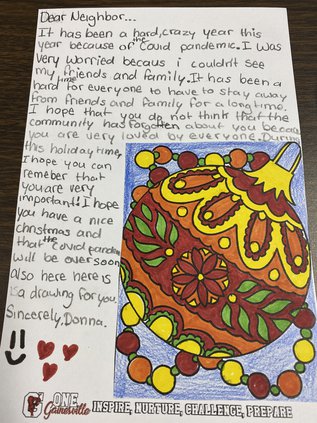 Dear Neighbor...
It has been a hard, crazy year this
year because of the Covid pandemic. I was
very worried becaus i couldn't see
my friends and family. It has been a
hard time for everyone to have to stay away
from friends and family for a long time.
I hope that you do not think that the
community has forgotten about you because
you are very loved by everyone. During
this holiday time,
I hope you can
remeber that
you are very
important! I hope
you have a nice
christmas and
that the Covid pandemic
will be over soon
also here here is
is a drawing for you.
Sincerely, Donna.
ONE
Gainesville
INSPIRE, NURTURE, CHALLENGE, PREPARE